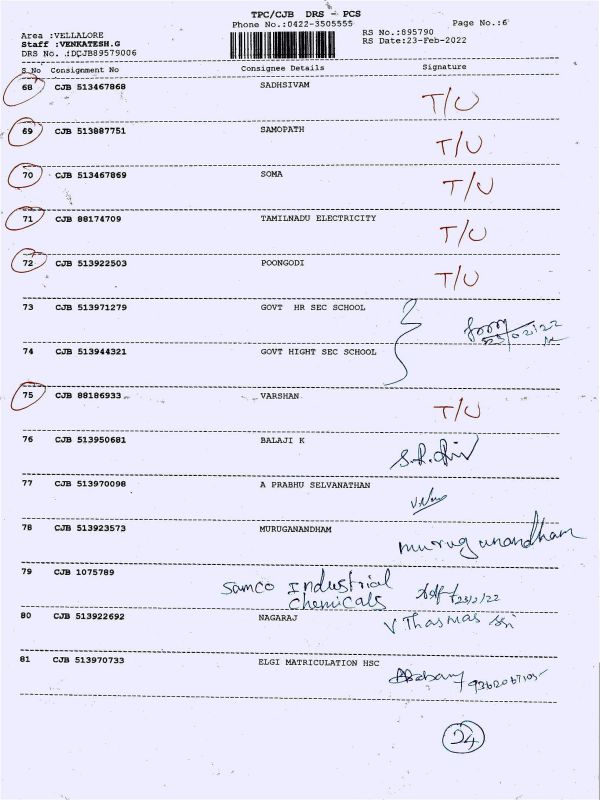 TPC/CJB DRS - PCS
Phone No.:0422-3505555
Page No.:6
Area :VELLALORE
RS No.:895790
Staff :VENKATESH.G
RS Date:23-Feb-2022
DRS No. :DCJB89579006
S No Consignment No Consignee Details Signature
68 CJB 513467868 SADHSIVAM T/U
69 CJB 513887751 SAMOPATH T/U
70 CJB 513467869 SOMA T/U
71 CJB 88174709 TAMILNADU ELECTRICITY T/U
72 CJB 513922503 POONGODI T/U
73 CJB 513971279 GOVT HR SEC SCHOOL
74 CJB 513944321 GOVT HIGHT SEC SCHOOL
75 CJB 88186933 VARSHAN T/U
76 CJB 513950681 BALAJI K
77 CJB 513970098 A PRABHU SELVANATHAN
78 CJB 513923573 MURUGANANDHAM murug anandham
79 CJB 1075789 Samco Industrial
Chemicals 23/2/22
80 CJB 513922692 NAGARAJ V Thasmas
81 CJB 513970733 ELGI MATRICULATION HSC
24